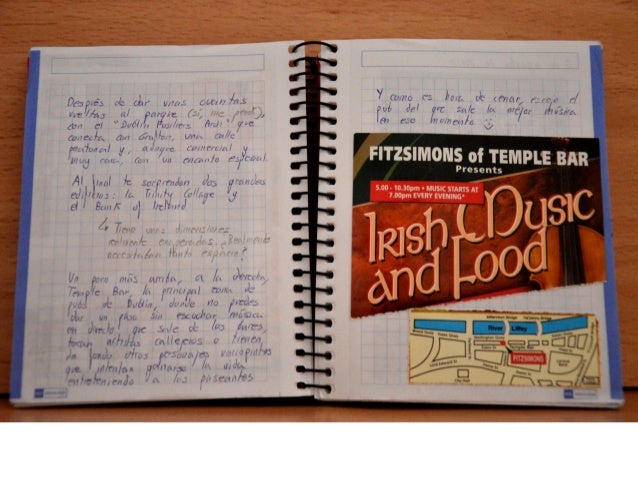 Después de dar unas cuantas
vueltas al parque (sí, me perdí),
con el "Dublin Fusiliers Arch" que
conecta con Grafton, una calle
peatonal y, aunque comercial y
muy cara, con un encanto especial.
Al final te sorprenden dos grandes
edificios: la Trinity College y
el Bank of Ireland
Tiene unas dimensiones
realmente exageradas. ¿Realmente
necesitaban tanto espacio?
Un poco más arriba, a la derecha,
Temple Bar, la principal zona de
pubs de Dublín, donde no puedes
dar un paso sin escuchar música
en directo que sale de los bares,
tocan artistas callejeros o tienen,
de fondo otros personajes variopintos
que intentan ganarse la vida
entreteniendo a los paseantes
Y como es hora de cenar, escojo el
pub del que sale la mejor música
en ese momento
FITZSIMONS of TEMPLE BAR
Presents
5.00 - 10.30pm • MUSIC STARTS AT
7.00pm EVERY EVENING*
Irish Music
and Food
River Liffey
Wellington Quay
Essex St
FITZSIMONS
Lord Edward St
Dame St
City Hall